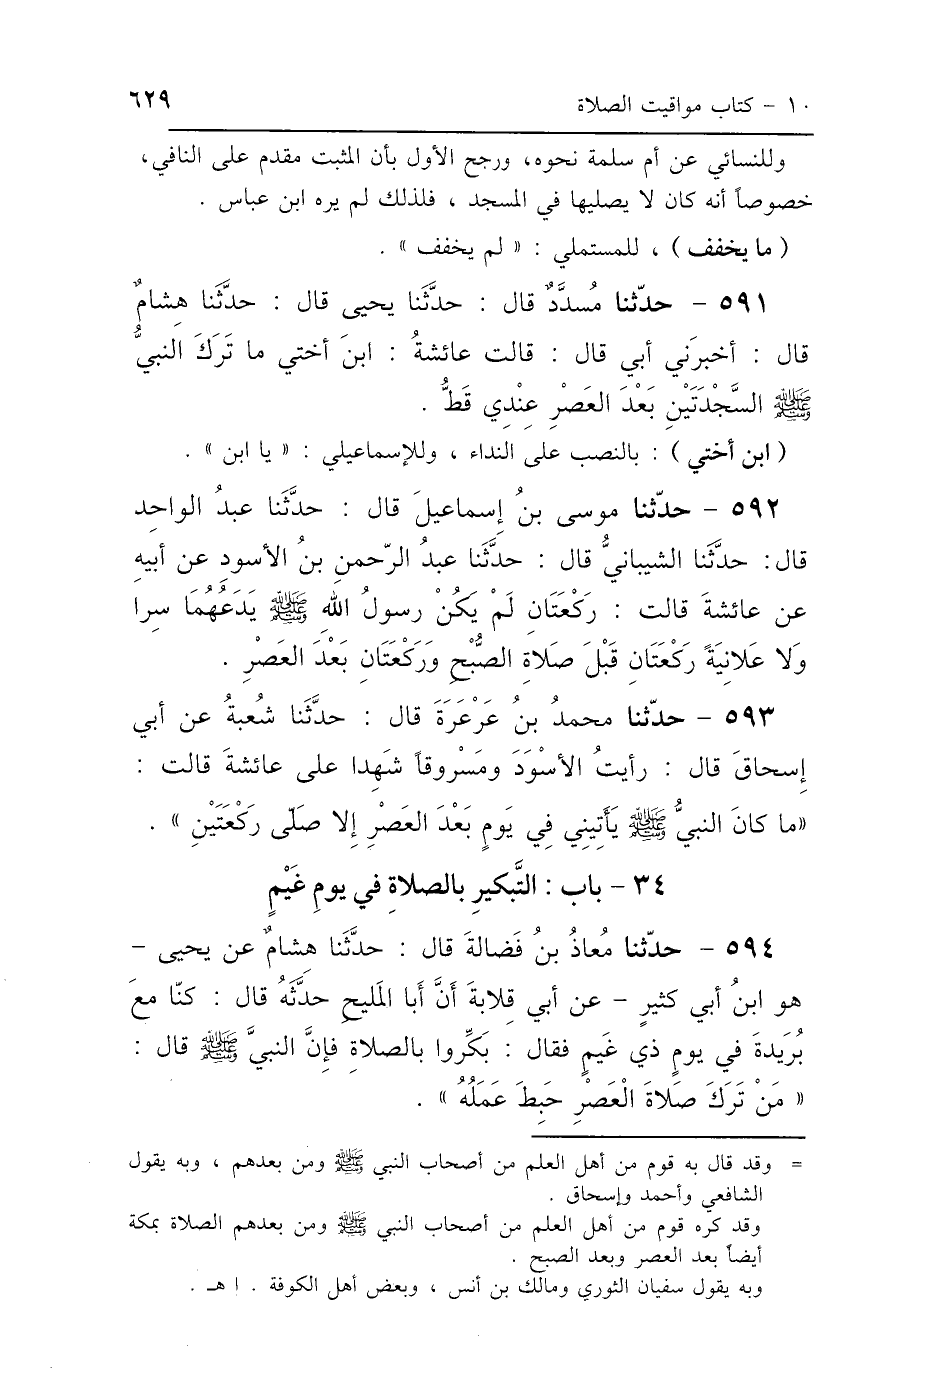 ١٠ - كتاب مواقيت الصلاة ٦٢٩
وللنسائي عن أم سلمة نحوه، ورجح الأول بأن المثبت مقدم على النافي،
خصوصاً أنه كان لا يصليها في المسجد ، فلذلك لم يره ابن عباس .
( ما يخفف ) ، للمستملي : « لم يخفف » .
٥٩١ - حدّثنا مُسدَّدٌ قال : حدَّثَنا يحيى قال : حدَّثَنا هشامٌ
قال : أخبرَني أبي قال : قالت عائشةُ : ابنَ أختي ما تَرَكَ النبيُّ
ﷺ السَّجْدَتَيْنِ بَعْدَ العَصْرِ عِنْدِي قَطُّ .
( ابن أختي ) : بالنصب على النداء ، وللإسماعيلي : « يا ابن » .
٥٩٢ - حدّثنا موسى بنُ إسماعيلَ قال : حدَّثَنا عبدُ الواحِد
قال: حدَّثَنا الشيبانيُّ قال : حدَّثَنا عبدُ الرّحمنِ بنُ الأسودِ عن أبيهِ
عن عائشةَ قالت : رَكْعَتَانِ لَمْ يَكُنْ رسولُ اللهِ ﷺ يَدَعُهُمَا سرا
وَلا عَلانِيَةً رَكْعَتَانِ قَبْلَ صَلاةِ الصُّبْحِ وَرَكْعَتَانِ بَعْدَ العَصْرِ .
٥٩٣ - حدّثنا محمدُ بنُ عَرْعَرَةَ قال : حدَّثَنا شُعبةُ عن أبي
إسحاقَ قال : رأيتُ الأسْوَدَ ومَسْروقاً شَهِدا على عائشةَ قالت :
«ما كانَ النبيُّ ﷺ يَأْتِينِي فِي يَومٍ بَعْدَ العَصْرِ إلا صَلّى رَكْعَتَيْنِ » .
٣٤ - باب : التَّبكيرِ بالصلاةِ في يومِ غَيْمٍ
٥٩٤ - حدّثنا مُعاذُ بنُ فَضالةَ قال : حدَّثَنا هشامٌ عن يحيى -
هو ابنُ أبي كثيرٍ - عن أبي قِلابةَ أنَّ أبا المَليحِ حدَّثَهُ قال : كنّا معَ
بُرَيدةَ في يومٍ ذي غَيمٍ فقال : بَكِّروا بالصلاةِ فإنَّ النبيَّ ﷺ قال :
« مَنْ تَرَكَ صَلاةَ الْعَصْرِ حَبِطَ عَمَلُهُ » .
= وقد قال به قوم من أهل العلم من أصحاب النبي ﷺ ومن بعدهم ، وبه يقول
الشافعي وأحمد وإسحاق .
وقد كره قوم من أهل العلم من أصحاب النبي ﷺ ومن بعدهم الصلاة بمكة
أيضاً بعد العصر وبعد الصبح .
وبه يقول سفيان الثوري ومالك بن أنس ، وبعض أهل الكوفة . ا هـ .